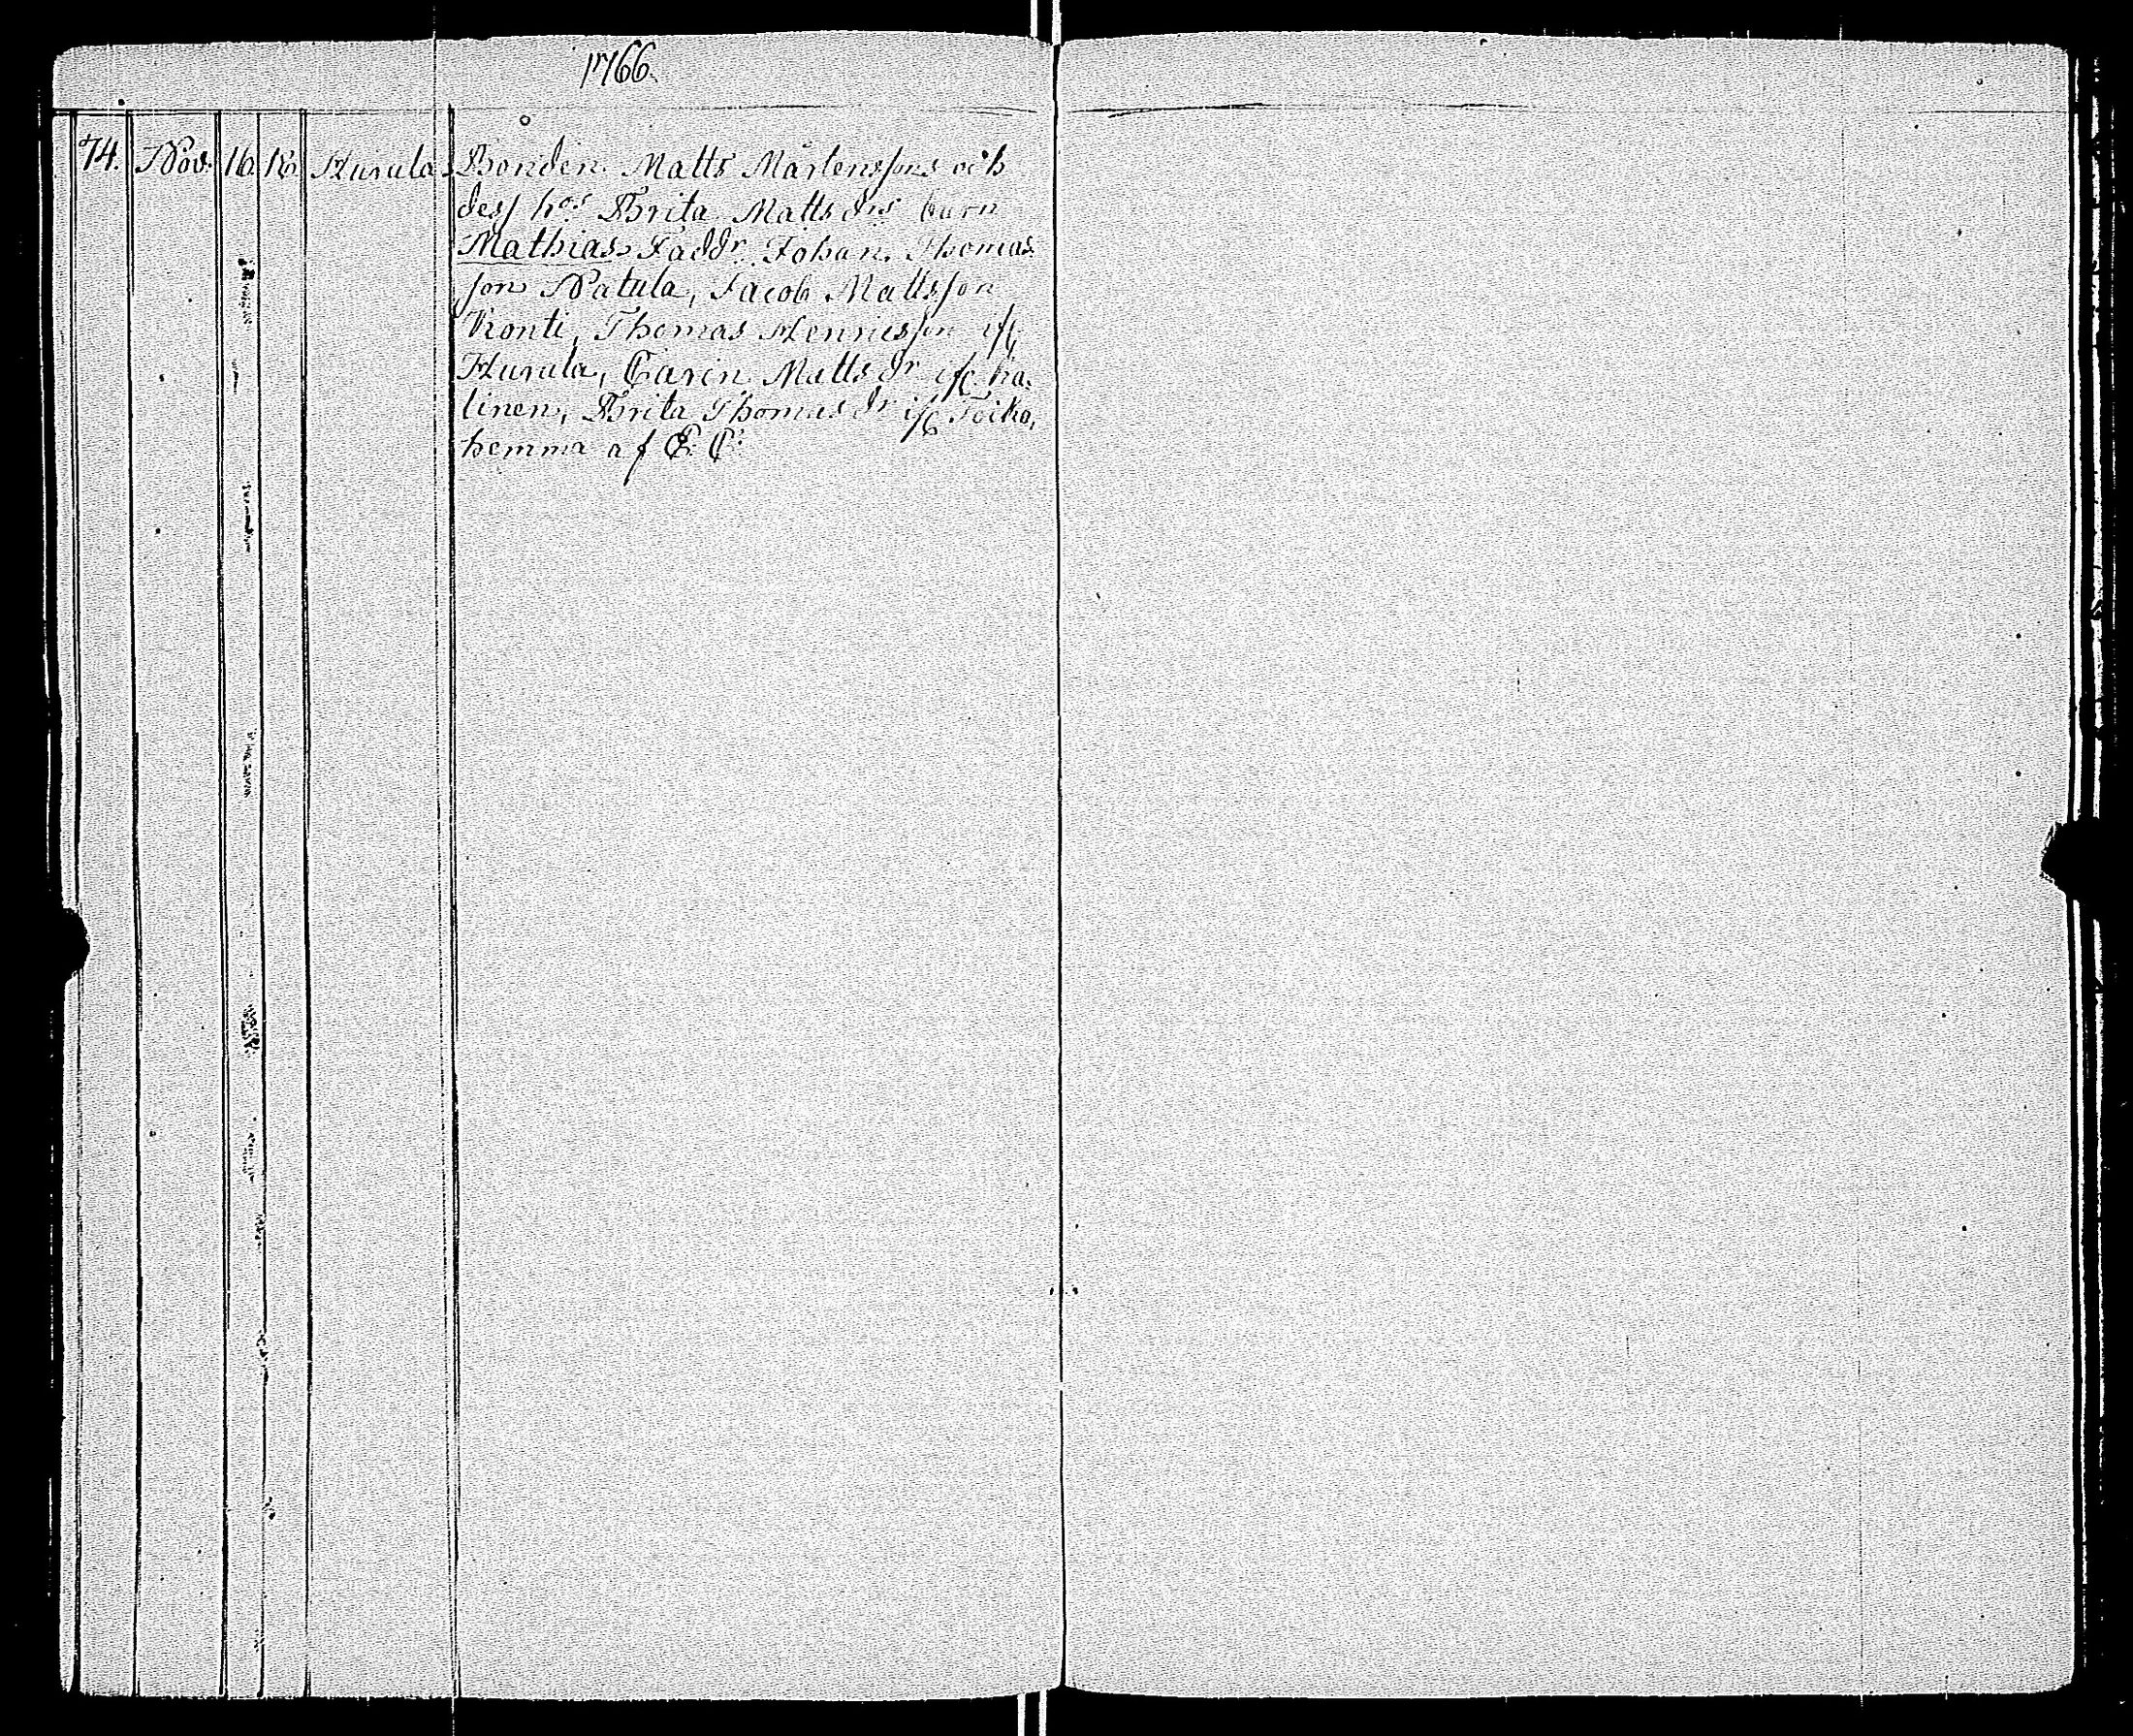 1766.
74. Nov. 16. 18. Hurula Bonden Matts Mårtenssons och
dess hos Brita Mattsdrs barn
Mathias Faddr. Johan Thomas
son Patula, Jacob Mattsson
Konti, Thomas Henricsson
Hurula, Carin Mattsdr
linen, Brita Thomasdr Toiko,
hemma af E. C.